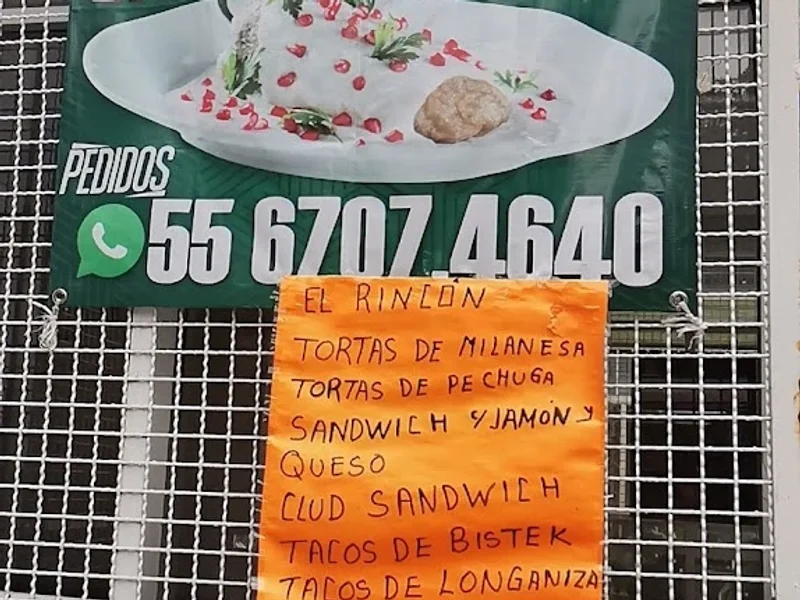 PEDIDOS
55 6707.4640
EL RINCÓN
TORTAS DE MILANESA
TORTAS DE PECHUGA
SANDWICH C/JAMÓN Y
QUESO
CLUD SANDWICH
TACOS DE BISTEK
TACOS DE LONGANIZA